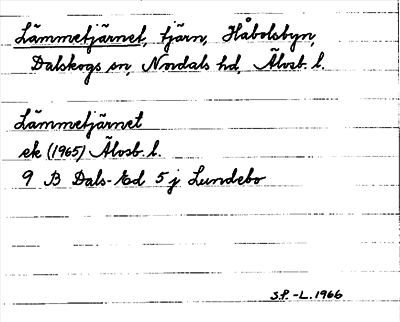 Lämmetjärnet, tjärn, Håbolsbyn,
Dalskogs sn, Nordals hd, Älvsb. l.
Lämmetjärnet
ek (1965) Älvsb. l.
9 B Dals-Ed 5 j Lundebo
S.P. -L. 1966